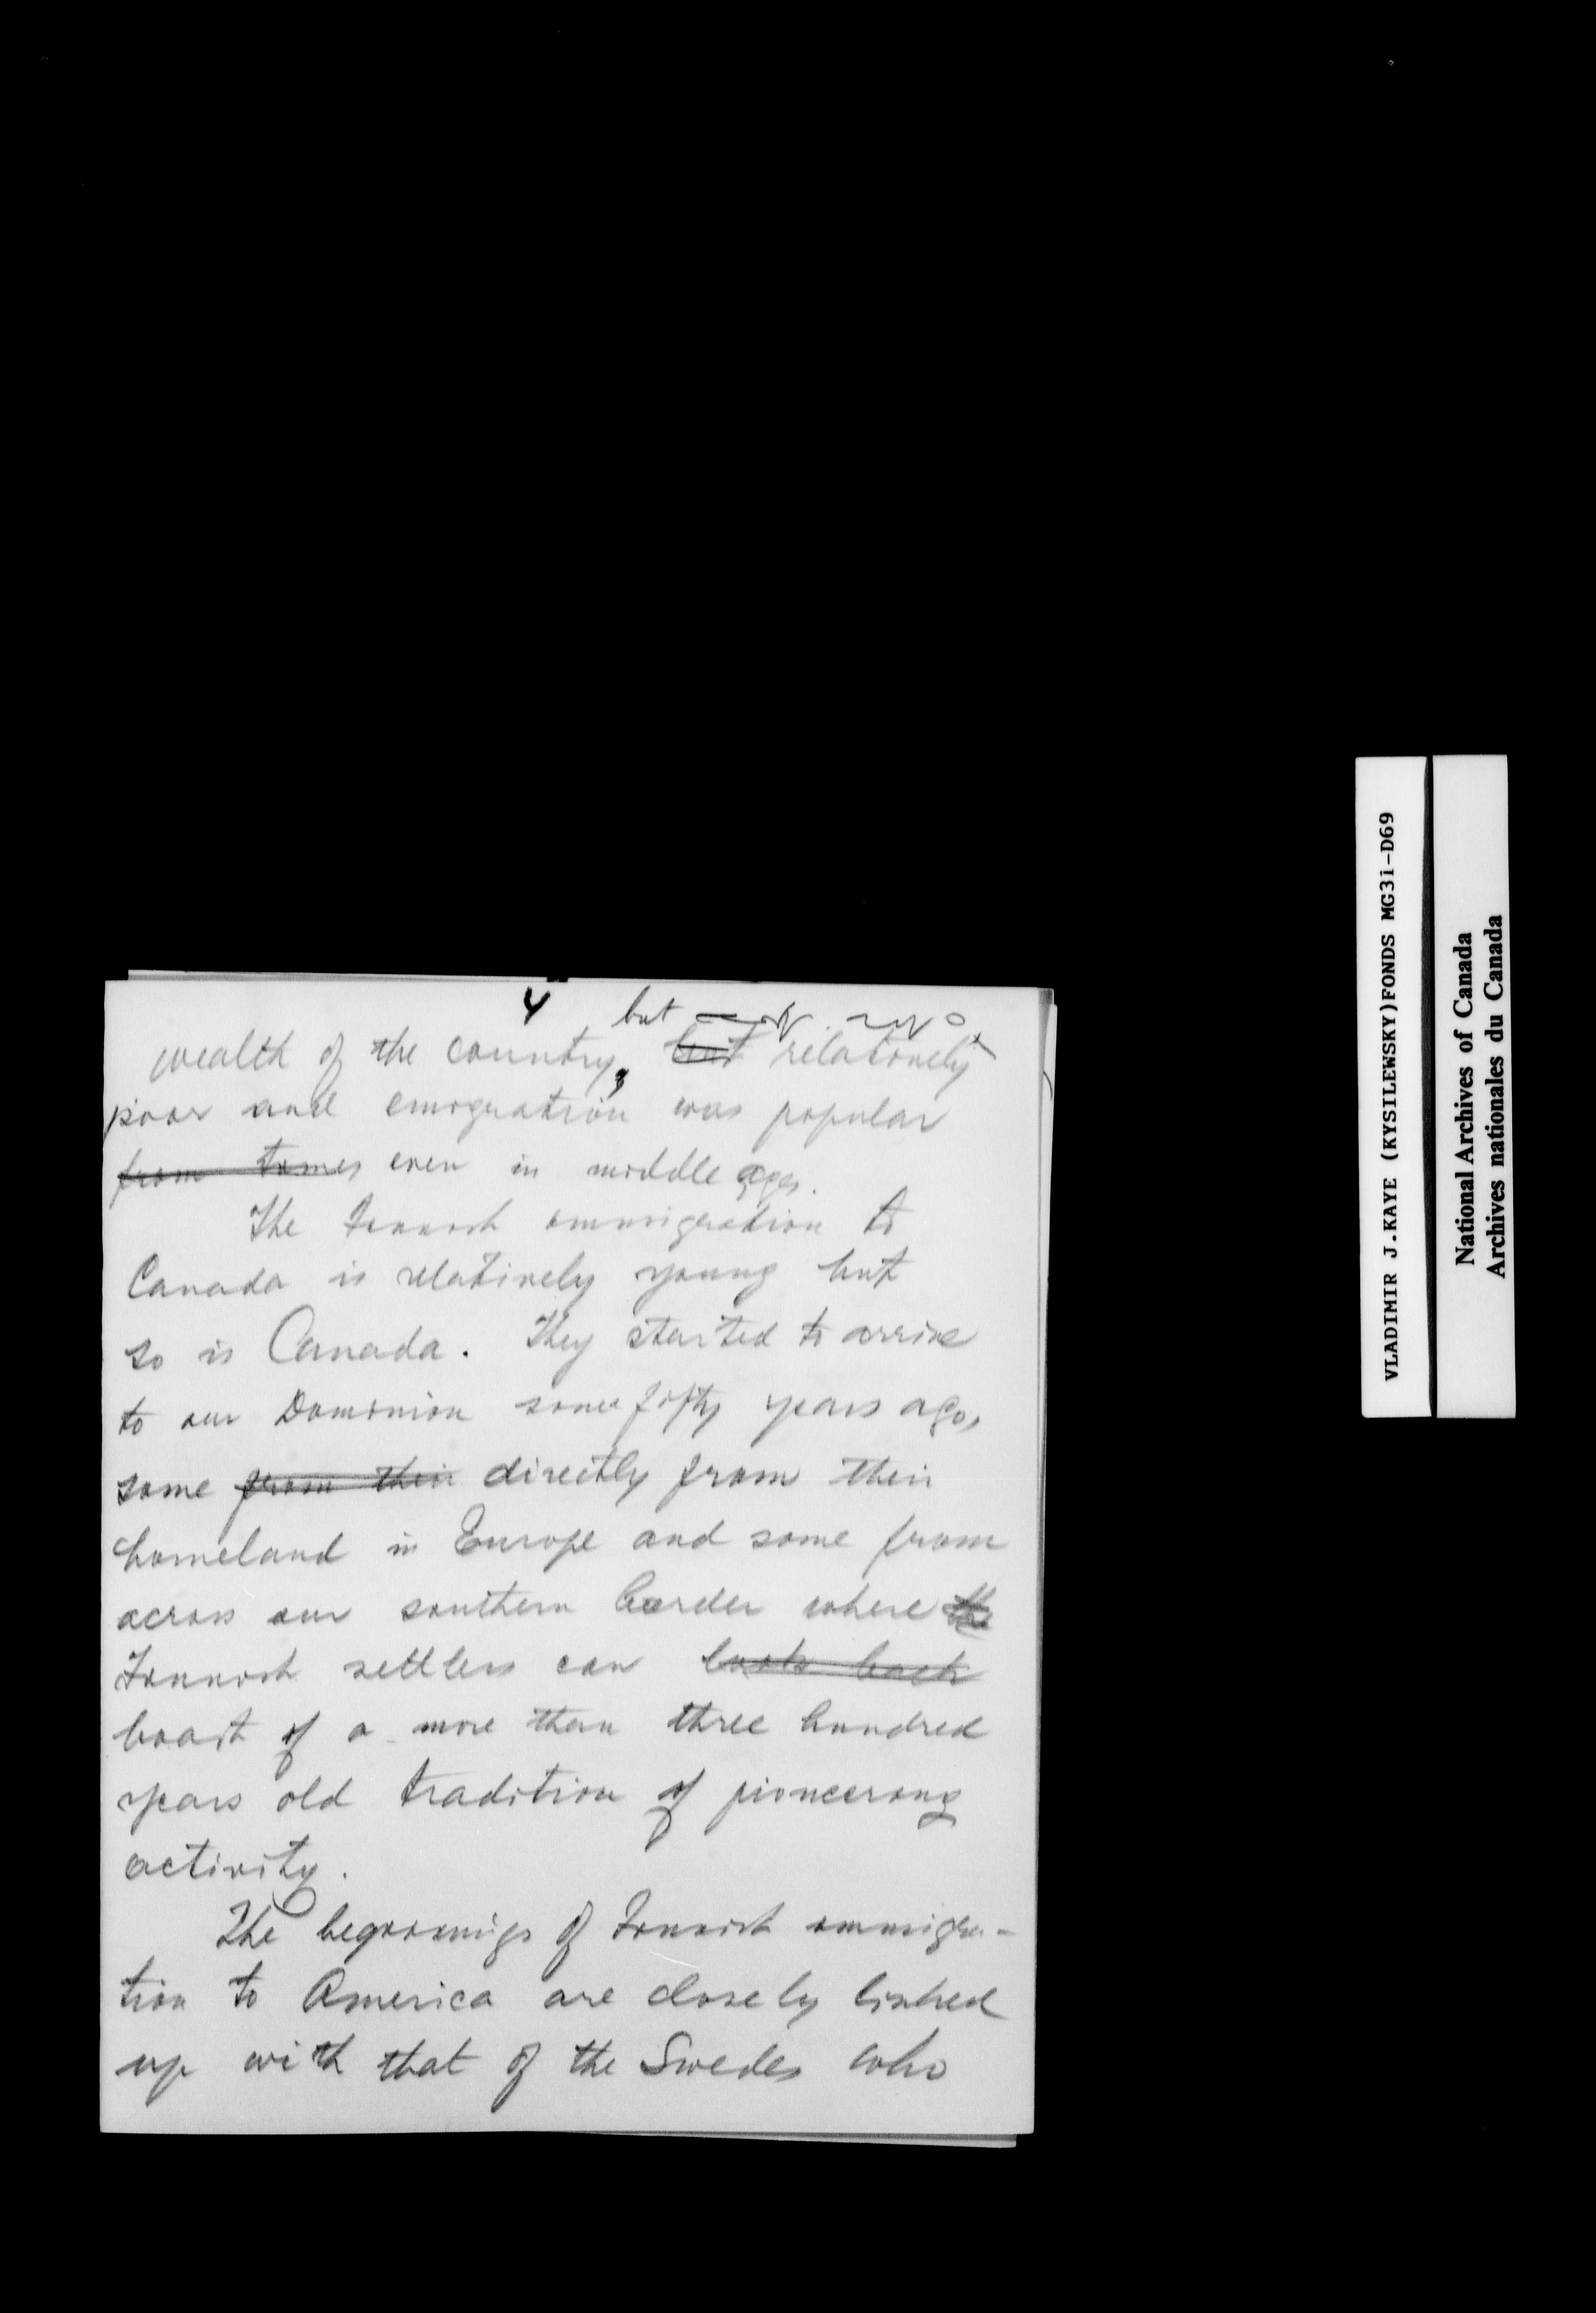 4
but
wealth of the country, but relatively
poor and emigration was popular
from times even in middle ages.
The Finnish immigration to
Canada is relatively young but
so is Canada. They started to arrive
to our Dominion some fifty years ago,
some from their directly from their
homeland in Europe and some from
across our southern border where the
Finnish settlers can look back
boast of a more than three hundred
years old tradition of pioneering
activity.
The beginnings of Finnish immigra-
tion to America are closely linked
up with that of the Swedes who
VLADIMIR J.KAYE (KYSILEWSKY)FONDS MG31-D69
National Archives of Canada
Archives nationales du Canada